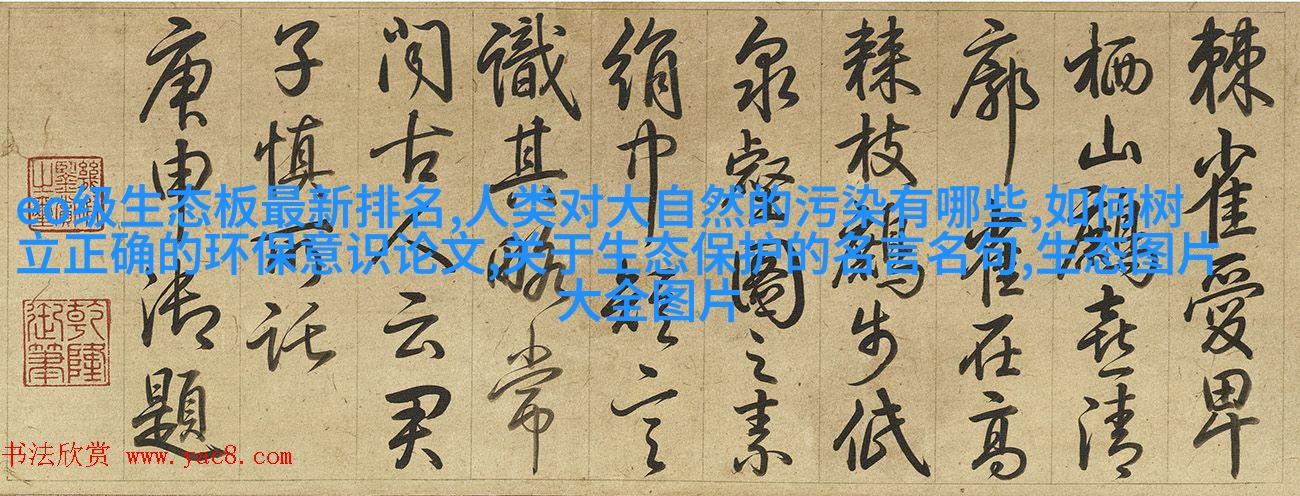 棘雀愛卑
栖山鷓喜清
廓雀在高
棘枝鷓步低
泉壑圖之素
絹巾言
識其略常
聞古人云君
子慎所託
庚申御題
乾隆御筆
e0级生态板最新排名,人类对大自然的污染有哪些,如何树
立正确的环保意识论文,关于生态保护的名言名句,生态图片
大全图片
书法欣赏 www.yac8.com